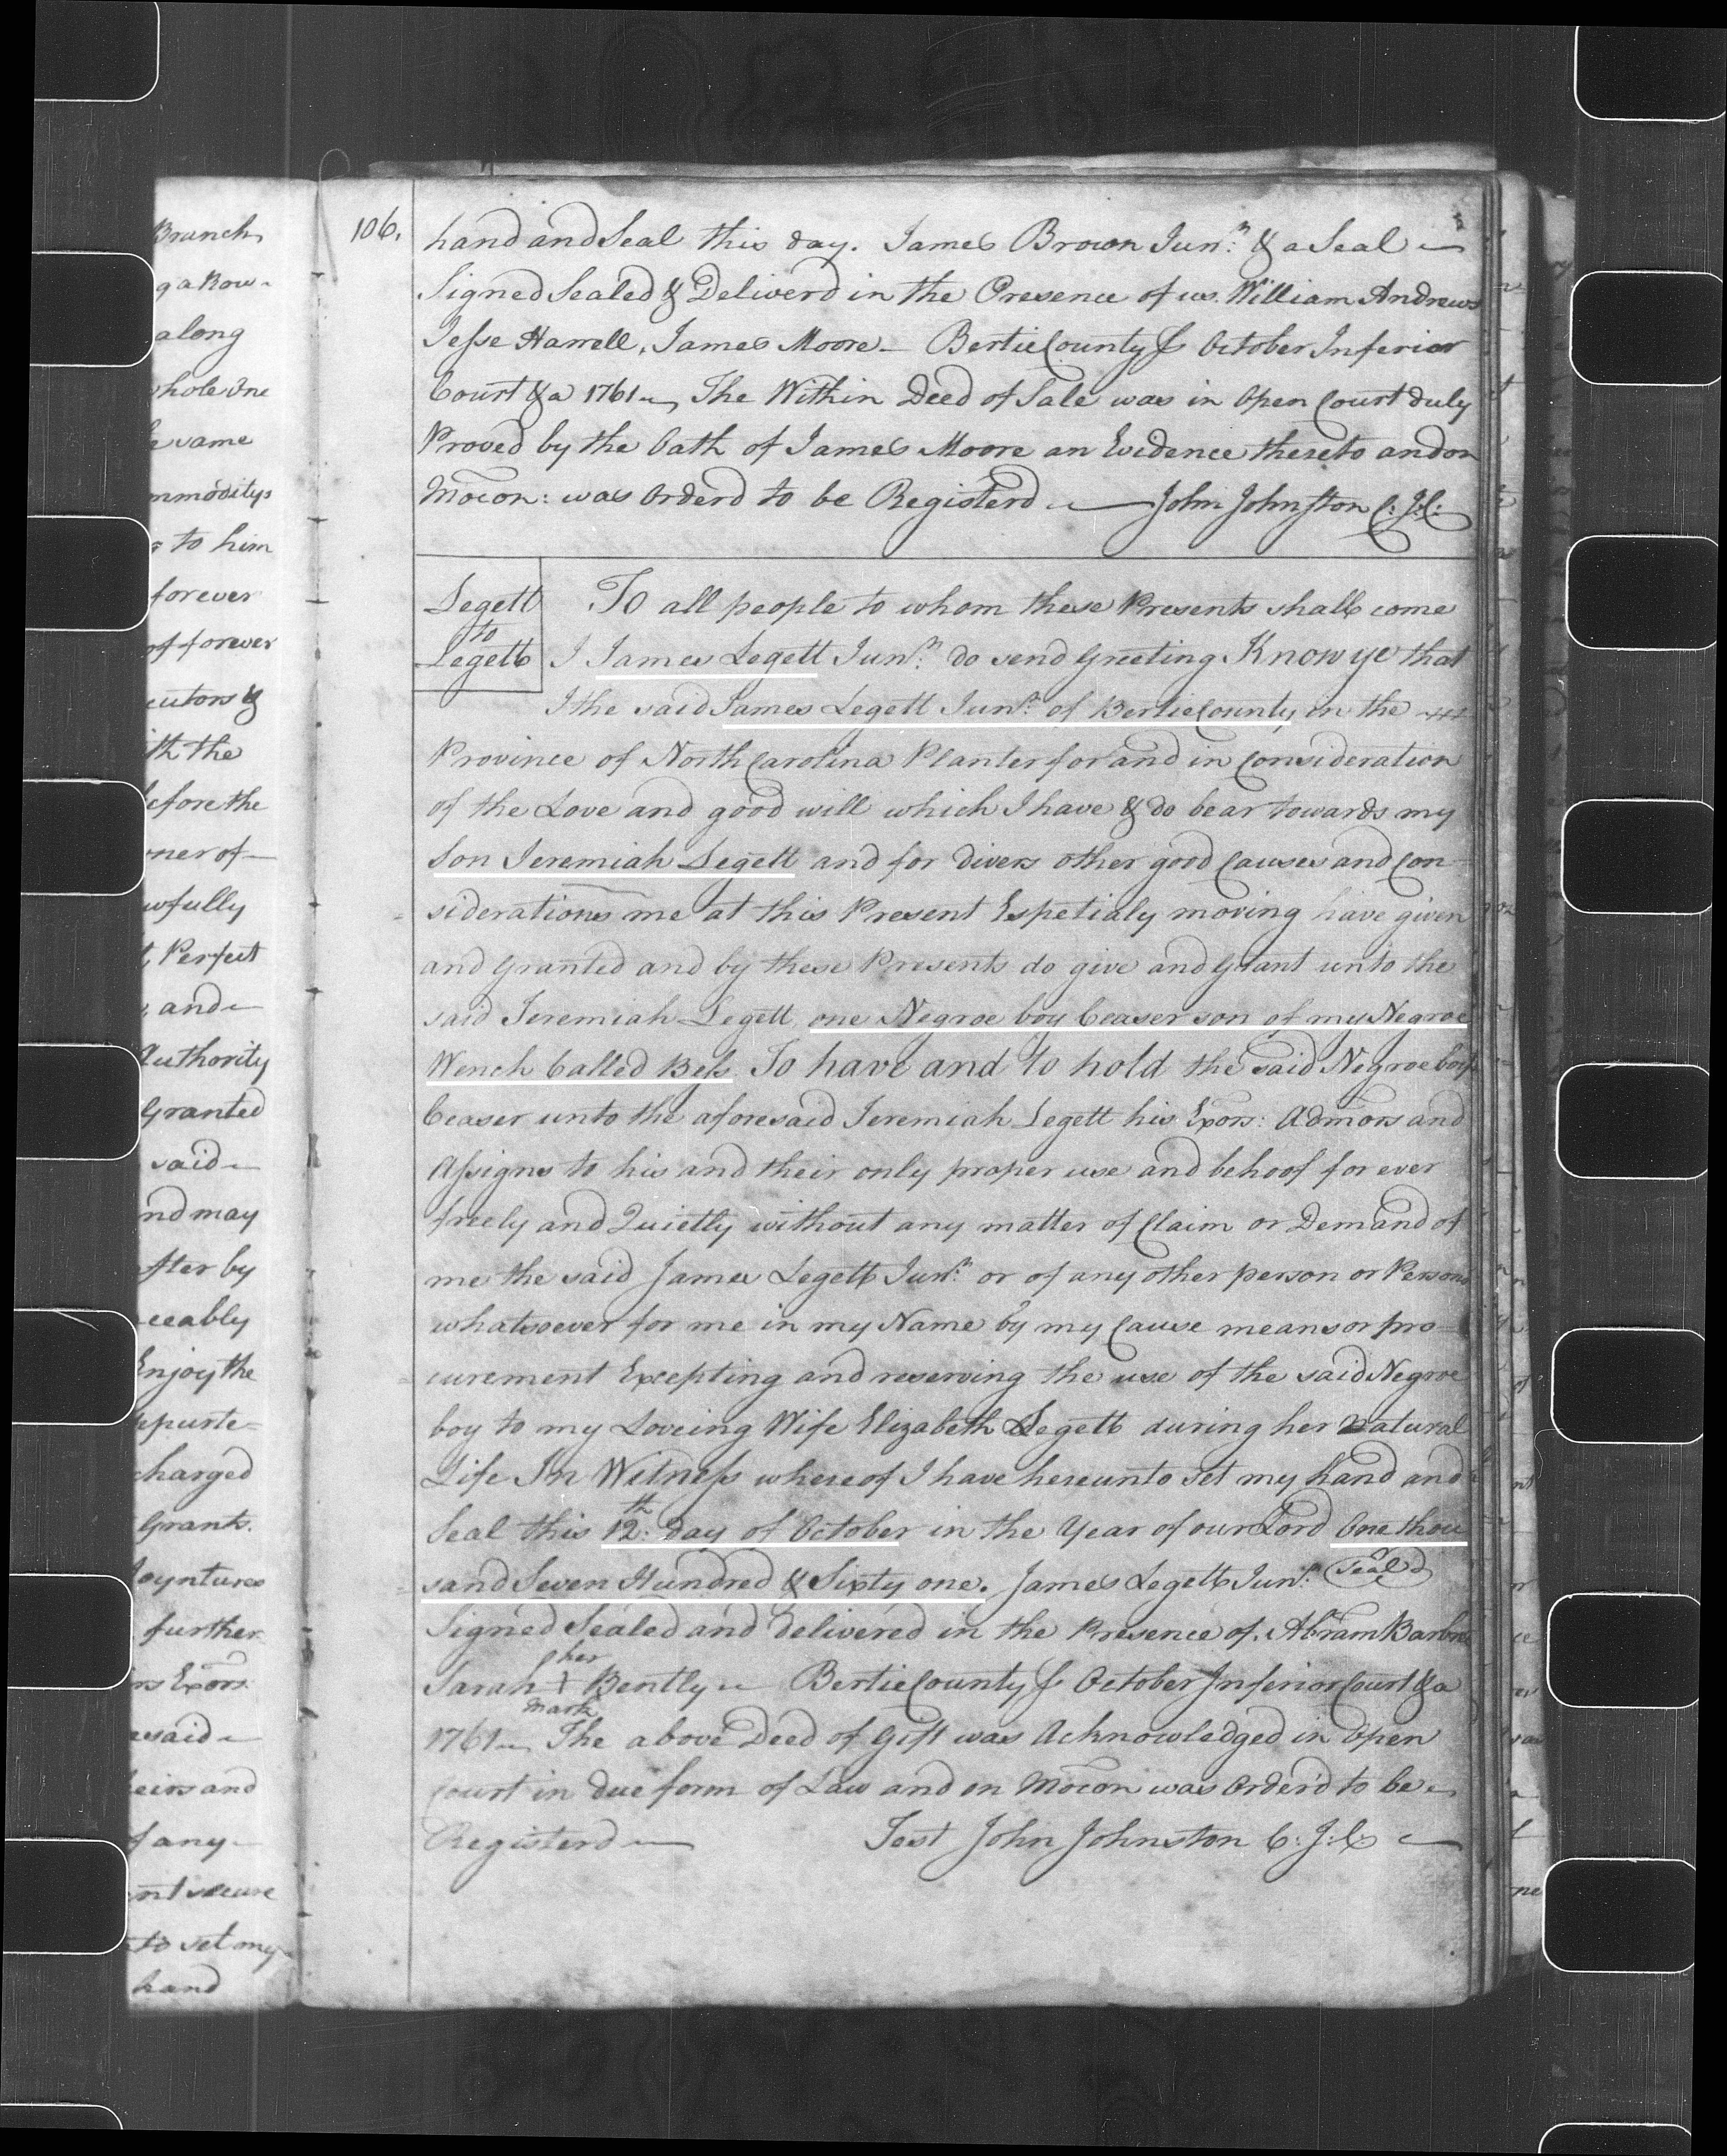 Branch
g a Row-
along
whole One
he same
mmoditys
s to him
forever
of forever
cutors &
ith the
before the
oner of
wfully
t, Perfect
, and
Authority
Granted
said
nd may
After by
ceeably
Enjoy the
ppurte=
charged
Grants.
Joyntures
further
rs Exors:
esaid
heirs and
f any
nt secure
to set my
hand
106.
hand and Seal this day. James Brown Junr: & a Seal
Signed Sealed & Deliverd in the Presence of us. William Andrews
Jesse Harrell, James Moore — Bertie County Js October Inferior
Court &a 1761 The Within Deed of Sale was in Open Court duly
Proved by the Oath of James Moore an Evidence thereto and on
Mocon: was Orderd to be Registerd — John Johnston C: J: C:
Legett
to
Legett
To all people to whom these Presents shall come
I James Legett Junr: do send Greeting Know ye that
I the said James Legett Junr: of Bertie County in the
Province of North Carolina Planter for and in Consideration
of the Love and good will which I have & do bear towards my
Son Jeremiah Legett and for divers other good Causes and Con
siderations me at this Present Espetialy moving have given
and Granted and by these Presents do give and Grant unto the
said Jeremiah Legett one Negroe boy Ceaser son of my Negroe
Wench Called Bess To have and to hold the said Negroe boy
Ceaser unto the aforesaid Jeremiah Legett his Exors: Admors and
Assigns to his and their only proper use and behoof for ever
freely and Quietly without any matter of Claim or Demand of
me the said James Legett Junr: or of any other person or Persons
whatsoever for me in my Name by my Cause means or pro
curement Excepting and reserving the use of the said Negroe
boy to my Loveing Wife Elizabeth Legett during her Natural
Life In Witness whereof I have hereunto set my hand and
Seal this 12th: day of October in the Year of our Lord One thou
sand Seven Hundred & Sixty one. James Legett Junr: Seal
Signed Sealed and delivered in the Presence of. Abram
her
Sarah + Bently — Bertie County Js October Inferior Court &a
mark
1761 The above Deed of Gift was Acknowledged in Open
Court in due form of Law and on Mocon was Order'd to be
Registerd — Test John Johnston C: J: C: